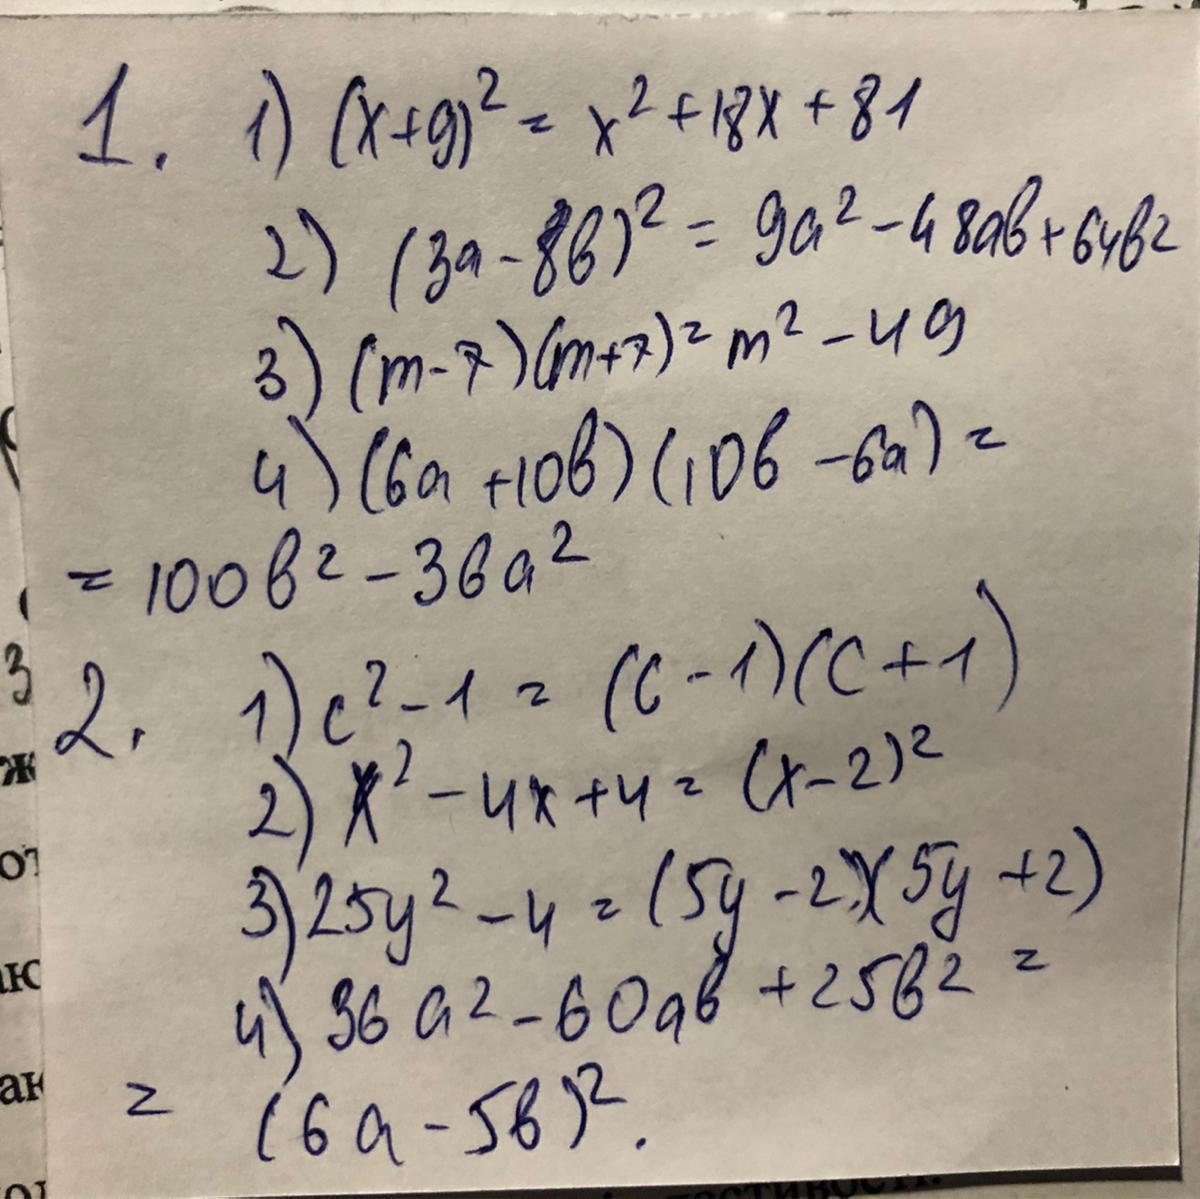 1. 1) (x+9)² = x² + 18x + 81
2) (3a - 8в)² = 9a² - 48aв + 64в²
3) (m - 7)(m + 7) = m² - 49
4) (6a + 10в)(10в - 6a) =
= 100в² - 36a²
2. 1) c² - 1 = (c - 1)(c + 1)
2) x² - 4x + 4 = (x - 2)²
3) 25y² - 4 = (5y - 2)(5y + 2)
4) 36a² - 60aв + 25в² =
= (6a - 5в)².